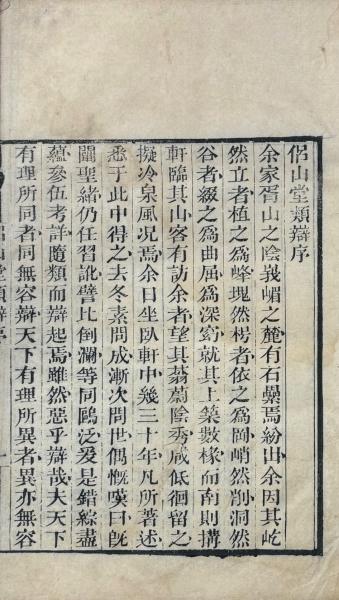 侶山堂類辯序
余家胥山之陰峩嵋之麓有石壘焉紛出余因其屹
然立者植之爲峰瑰然楞者依之爲岡峭然削洞然
谷者綴之爲曲屈爲深窈就其上築數椽而南則搆
軒臨其山客有訪余者望其蓊蔚陰秀咸低徊留之
擬冷泉風况焉余日坐臥軒中幾三十年凡所著述
悉于此中得之去冬素問成漸次問世偶慨嘆曰旣
闡聖緒仍任習訛譬比倒瀾等同鷗泛爰是錯綜盡
蘊參伍考詳隨類而辯起焉雖然惡乎辯哉夫天下
有理所同者同無容辯天下有理所異者異亦無容